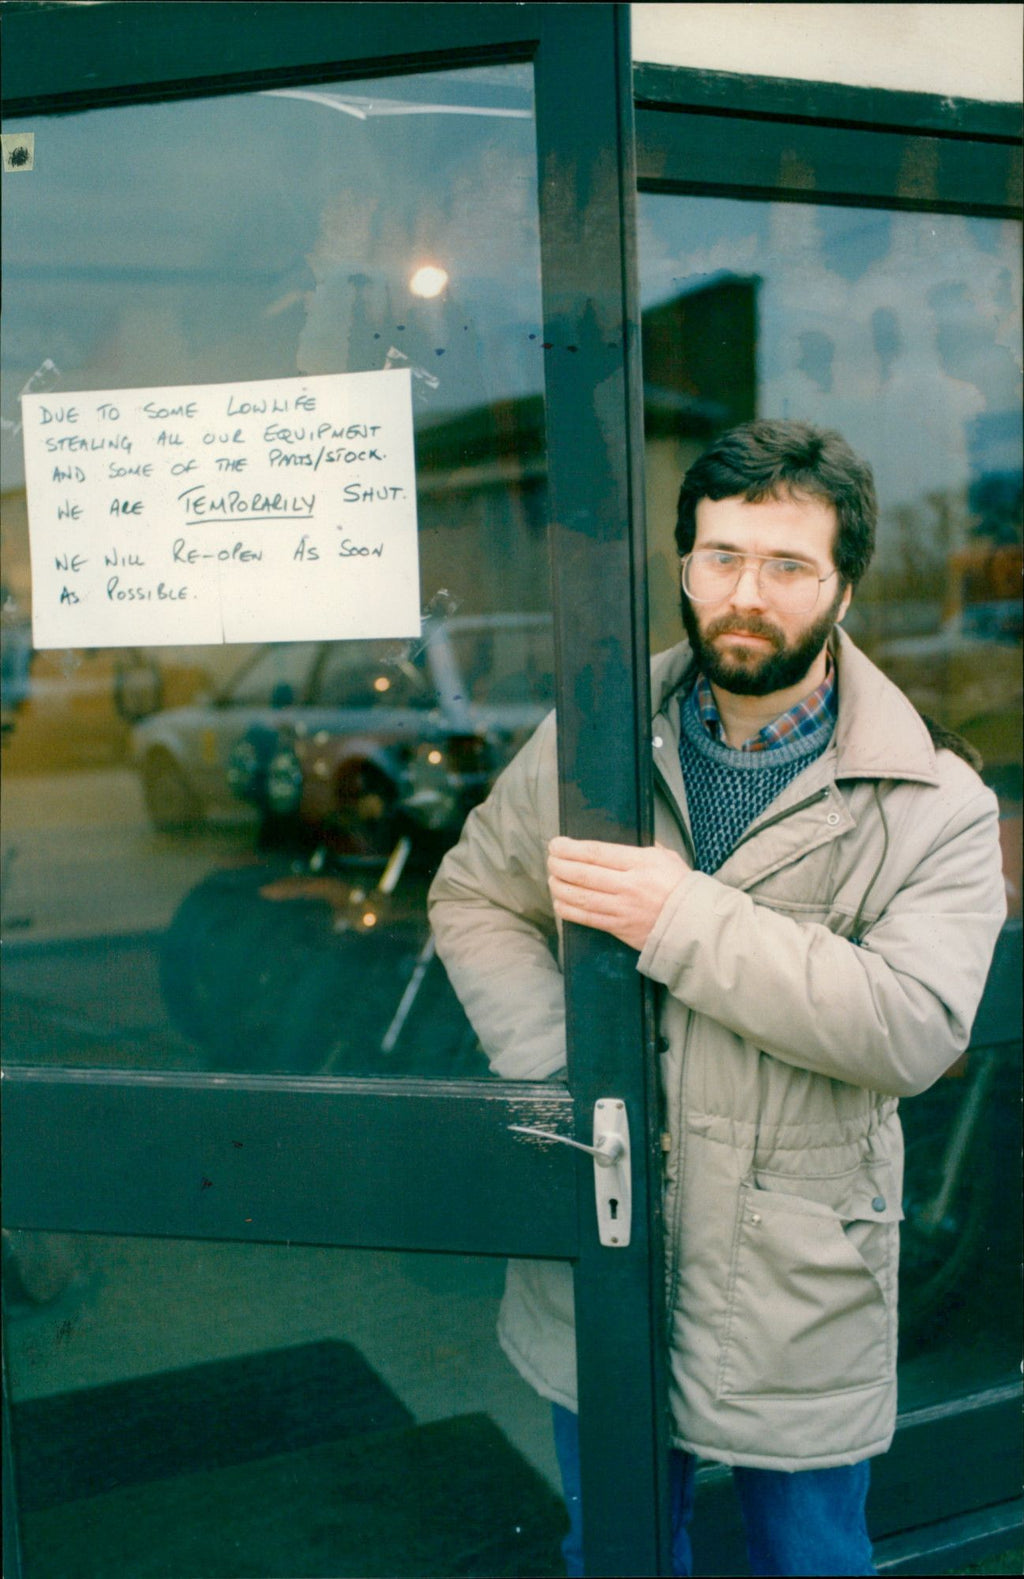 DUE TO SOME LOWLIFE
STEALING ALL OUR EQUIPMENT
AND SOME OF THE PARTS/STOCK.
WE ARE TEMPORARILY SHUT.
WE WILL RE-OPEN AS SOON
AS POSSIBLE.